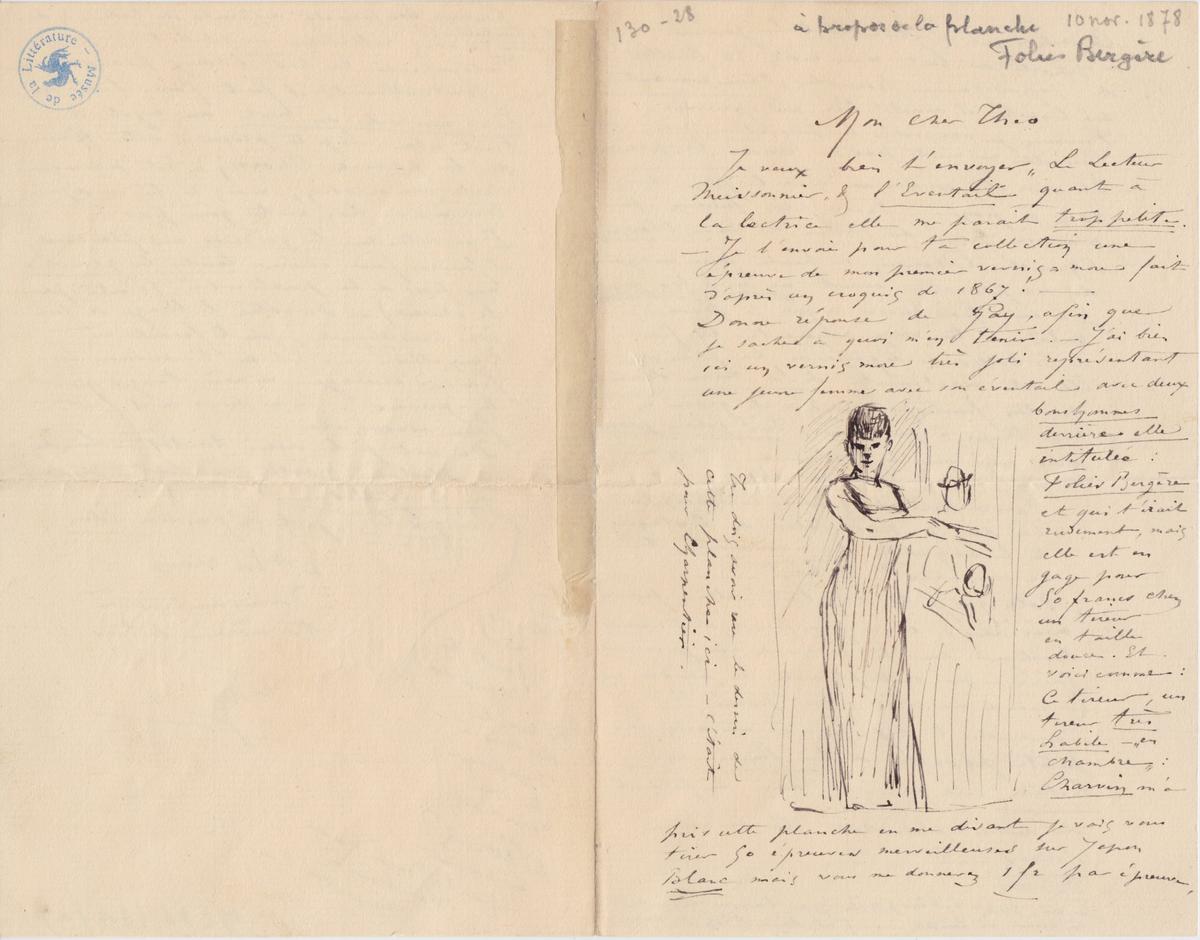 Musée de la Littérature
130 - 28
à propos de la planche 10 nov. 1878
Folies Bergère
Mon cher Théo
Je veux bien t'envoyer „Le Lecteur
Meissonnier, & l'Eventail quant à
la lectrice elle me parait trop petite.
— Je t'envoie pour ta collection une
épreuve de mon premier vernis more fait
d'après un croquis de 1867! —
Donne réponse de Gay, afin que
je sache à quoi m'en tenir. — J'ai bien
ici un vernis more très joli représentant
une jeune femme avec son éventail avec deux
bonshommes
derrière elle
intitulée :
Folies Bergère
et qui t'irait
rudement, mais
elle est en
gage pour
50 francs chez
un tireur
en taille
douce. Et
voici comme :
Ce tireur, un
tireur très
habile — „en
chambre„ :
Charvin m'a
pris cette planche en me disant je vais vous
tirer 50 épreuves merveilleuses sur Japon
Blanc mais vous me donnerez 1 fr par épreuve,
Tu dois avoir vu le dessin de
cette planche ici — c'était
pour Charpentier.